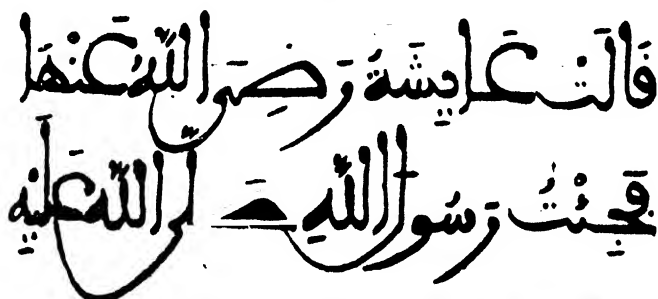 قَالَتْ عَايِشَةُ رَضِيَ اللّٰهُ عَنْهَا
فَجِئْتُ رَسُولَ اللّٰهِ صَلَّى اللّٰهُ عَلَيْهِ